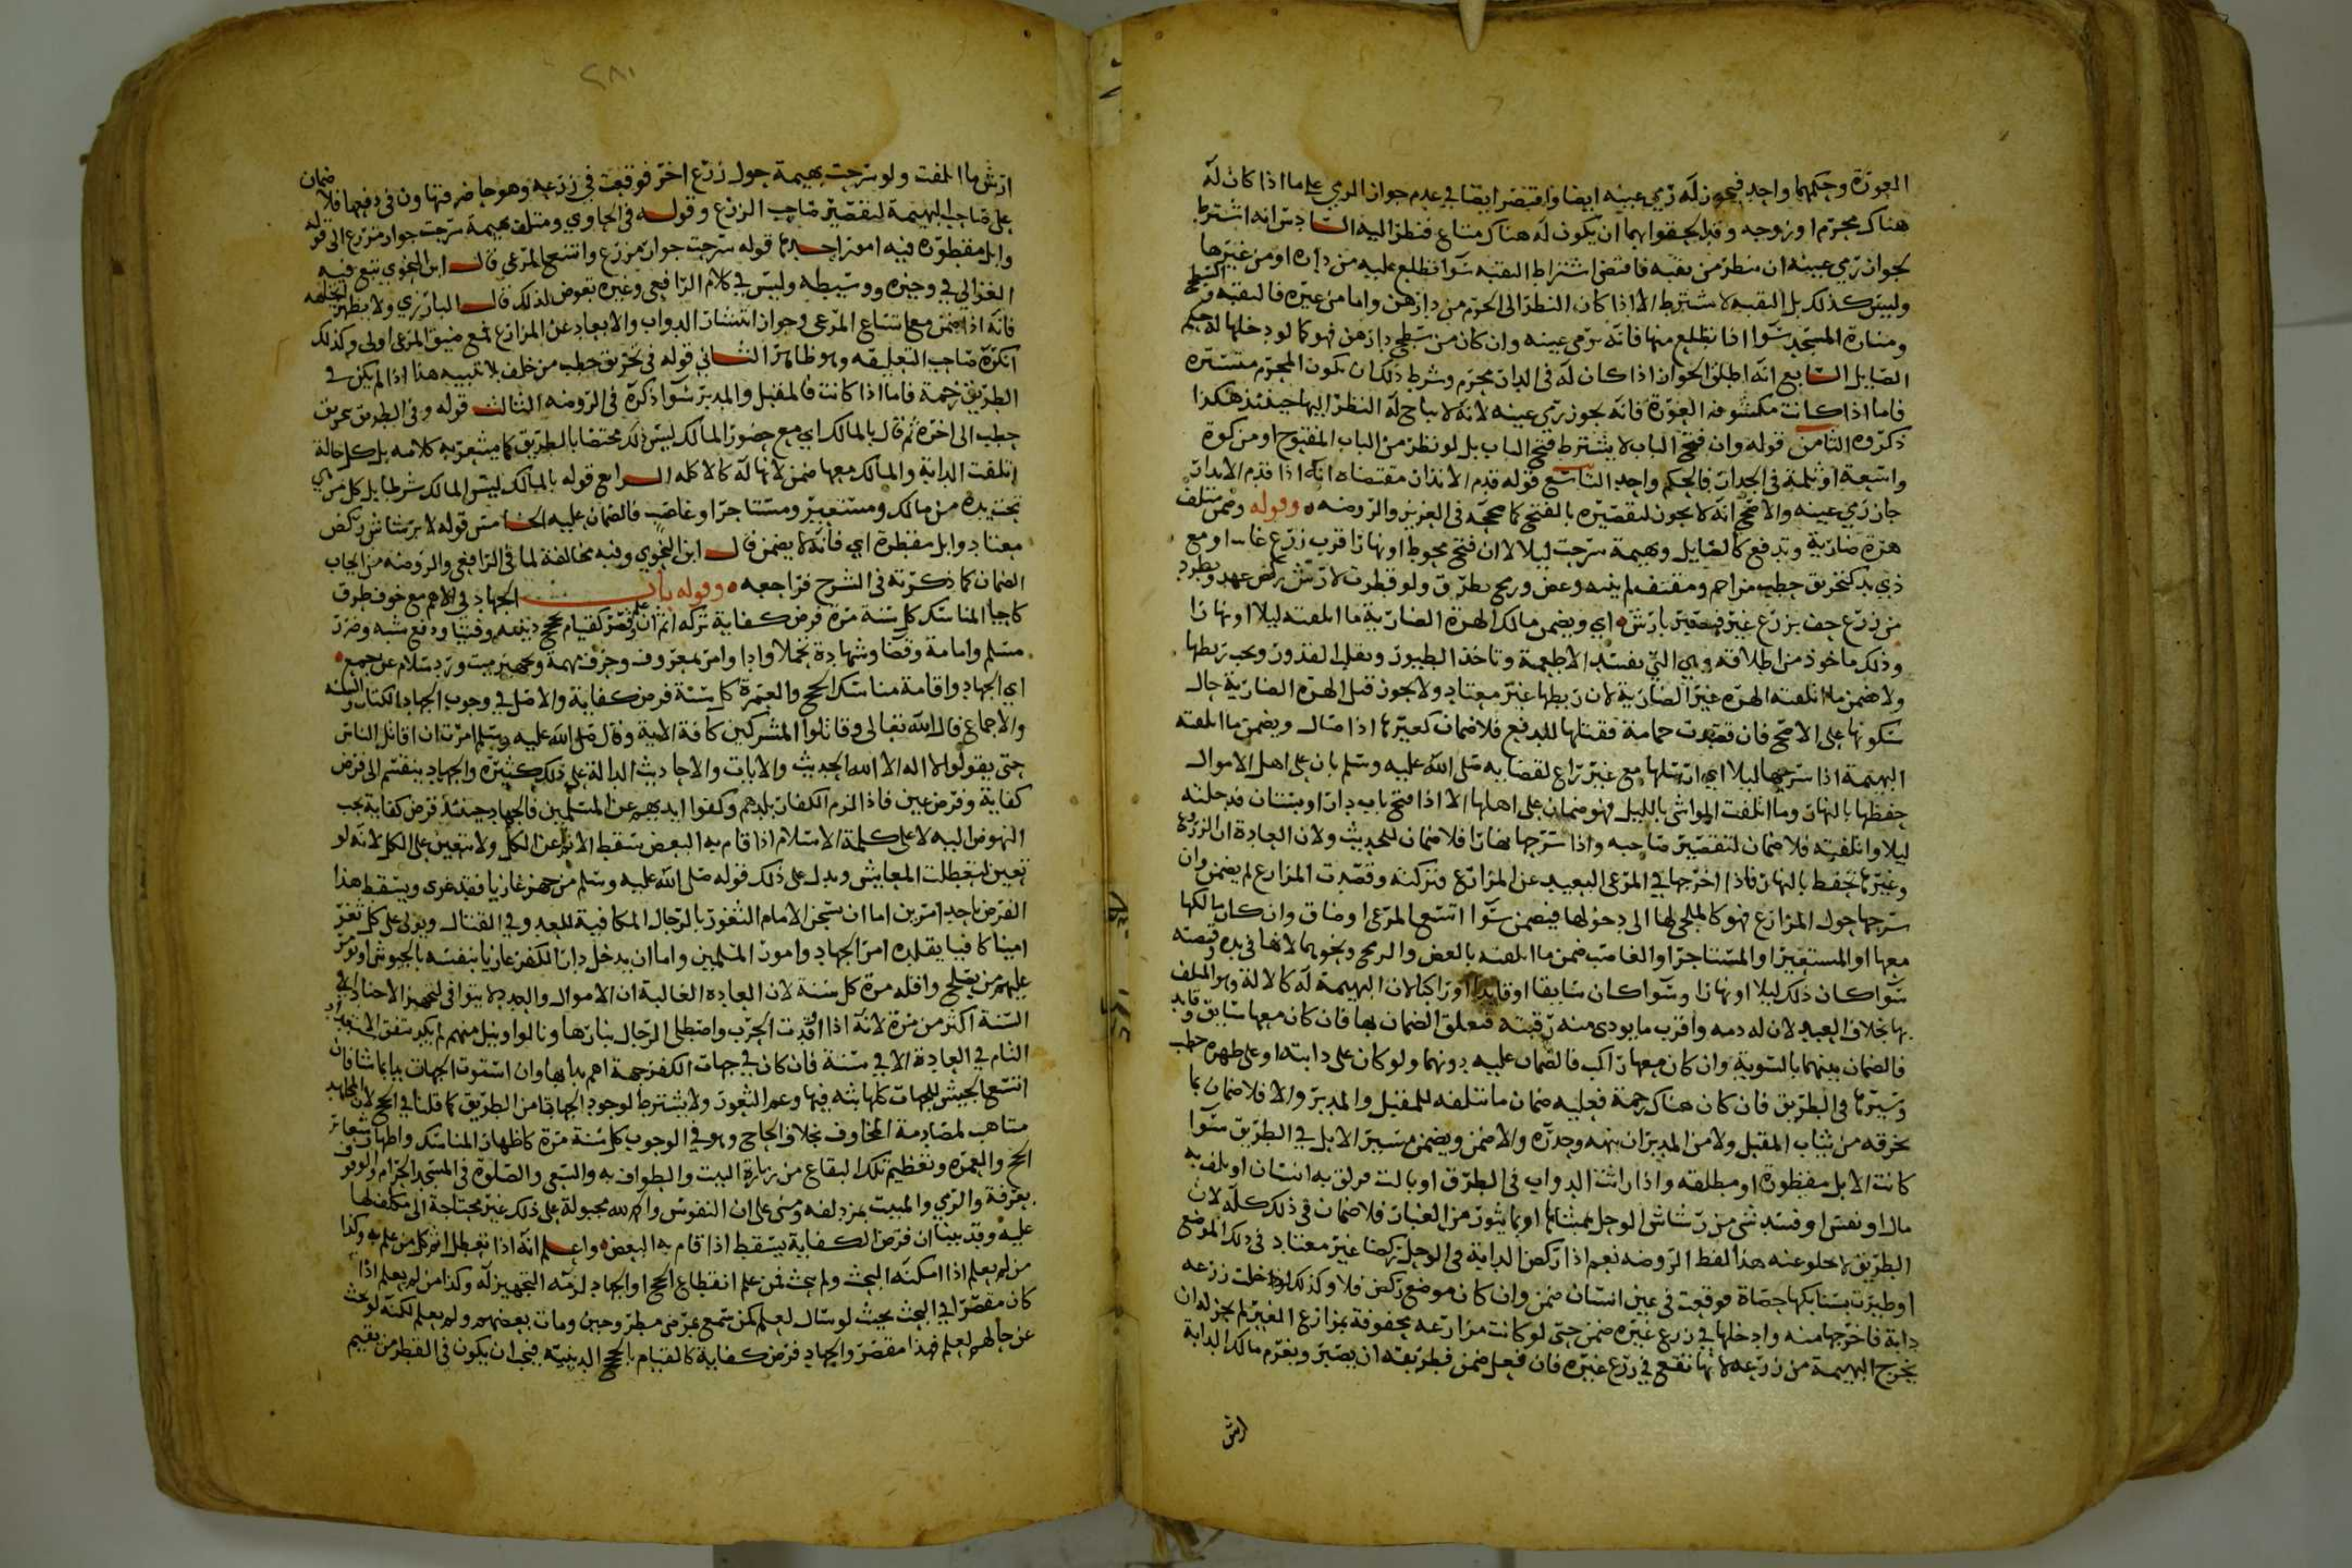 العورة وحكمهما واحد فيجوز له رمي عينه ايضا واقتصر ايضا في عدم جواز الرمي على ما اذا كان له
هناك محرم او زوجه وقد الحقوا بهما ان يكون له هناك متاع فنظر اليه السادس انه اشترط
لجواز رمي عينه ان ينظر من نقبه فاقتضى اشتراط النقبه سوا تطلع عليه من داره او من غيرها
وليس كذلك بل النقبه لا تشترط الا اذا كان النظر الى الحرم من دارهن واما من غيره فالنقبه وسطح
ومنارة المسجد سوا اذا تطلع منها فانه يرمى عينه وان كان من سطح دارهن فهو كما لو دخلها له حكم
الصايل السابع انه اطلق الجواز اذا كان له في الدار محرم وشرط ذلك ان يكون المحرم مستتره
فاما اذا كانت مكشوفه العورة فانه يجوز رمي عينه لانه لا يباح له النظر اليها حينئذ هكذا
ذكروه الثامن قوله وان فتح الباب لا يشترط فتح الباب بل لو نظر من الباب المفتوح او من كوة
واسعة او ثلمة في الجدار فالحكم واحد التاسع قوله قدم الانذار مقتضاه انه اذا قدم الانذار
جاز رمي عينه والاصح انه لا يجوز لتقصيره بالفتح كما صححه في العزيز والروضه وقوله وضمن متلف
هرة ضارية وتدفع كالصايل وبهيمة سرحت ليلا لا ان فتح محوط او نهارا قرب زرع او مع
ذي يد كتخريق حطب من احم ومقتف لم ينبه وعض ورمح بطرق ولو قطرت لا رش ركض عهد وبطرد
من زرع حف بزرع غير فيصير بارش اي ويضمن مالك الهرة الضارية ما اتلفته ليلا او نهارا
وذلك ماخوذ من اطلاقه وهي التي تفسد الاطعمة وتاخذ الطيور وتقلب القدور ويجب ربطها
ولا ضمن ما اتلفته الهره غير الضارية لان ربطها غير معتاد ولا يجوز قتل الهره الضارية حال
سكونها على الاصح فان قصدت حمامة فقتلها للدفع فلا ضمان كغيرها اذا صال ويضمن ما اتلفته
البهيمة اذا سرحها ليلا اي ارسلها مع غير راع لقضا به صلى الله عليه وسلم بان على اهل الاموال
حفظها بالنهار وما اتلفت المواشي بالليل فهو ضمان على اهلها الا اذا فتح باب دار او بستان فدخلته
ليلا واتلفته فلا ضمان لتقصير صاحبه واذا سرحها نهارا فلا ضمان للحديث ولان العادة ان الزروع
وغيرها تحفظ بالنهار فاذا اخرجها في المرعى البعيد عن المزارع فتركته وقصدت المزارع لم يضمن وان
سرحها حول المزارع فهو كالملجي لها الى دخولها فيضمن سوا اتسع المرعى او ضاق وان كان مالكها
معها او المستعير او المستاجر او الغاصب ضمن ما اتلفته بالعض والرمح ونحوهما لانها في يده وقبضته
سوا كان ذلك ليلا او نهارا وسوا كان سايقا او قايدا او راكبا لان البهيمة له كالالة وهو المتلف
بها بخلاف العبد لان له ذمه واقرب ما يودى منه رقبته فتعلق الضمان بها فان كان معها سايق وقايد
فالضمان بينهما بالسوية وان كان معها راكب فالضمان عليه دونهما ولو كان على دابته او على ظهره حطب
وسيرها في الطريق فان كان هناك زحمة فعليه ضمان ما تتلفه للمقبل والمدبر والا فلا ضمان بما
تخرقه من ثياب المقبل ولا من المدبر ان نبهه وحذره والا ضمن ويضمن مسير الابل في الطريق سوا
كانت الابل مقطورة او مطلقه واذا راثت الدواب في الطرق او بالت فزلق به انسان او تلف به
مال او نفس او فسد شي من رشاش الوحل بممشاها او بما يثور من الغبار فلا ضمان في ذلك كله لان
الطريق لا يخلو عنه هذا لفظ الروضه نعم اذا ركض الدابة في الوحل ركضا غير معتاد في ذلك الموضع
او طيرت بسنابكها حصاة فوقعت في عين انسان ضمن وان كان موضع ركض فلا وكذلك لو دخلت زرعه
دابة فاخرجها منه وادخلها في زرع غيره ضمن حتى لو كانت مزارعه محفوفة بمزارع الغير لم يجز له ان
يخرج البهيمة من زرعه لانها تقع في زرع غيره فان فعل ضمن فطريقه ان يصبر ويغرم مالك الدابة
ارش
٢٨١
ارش ما اتلفت ولو سرحت بهيمة حول زرع اخر فوقعت في زرعه وهو حاضر فتهاون في دفعها فلا ضمان
على صاحب البهيمة لتقصير صاحب الزرع وقوله في الحاوي ومتلف بهيمة سرحت جوار مزرع الى قوله
وابل مقطوره فيه امور احدها قوله سرحت جوار مزرع واتسع المرعى قال ابن النحوي تبع فيه
الغزالي في وجيزه ووسيطه وليس في كلام الرافعي وغيره تعرض لذلك قال البارزي ولا يظهر لتخلفه
فانه اذا ضمن مع اتساع المرعى وجواز انتشار الدواب والابعاد عن المزارع فمع ضيق المرعى اولى وكذلك
انكره صاحب التعليقه وهو ظاهر الثاني قوله في تخريق حطب من خلف بلا تنبيه هذا اذا لم يكن في
الطريق زحمة فاما اذا كانت فالمقبل والمدبر سوا ذكره في الروضه الثالث قوله وفي الطريق تخريق
حطب الى اخره ثم قال بالمالك اي مع حضور المالك ليس ذلك مختصا بالطريق كما يشعر به كلامه بل كل حالة
اتلفت الدابة والمالك معها ضمن لانها له كالاكله الرابع قوله بالمالك ليس المالك شرطا بل كل من هي
تحت يده من مالك ومستعير ومستاجر او غاصب فالضمان عليه الخامس قوله لا برشاش ركض
معتاد وابل مقطرة اي فانه لا يضمن قال ابن النحوي وفيه مخالفة لما في الرافعي والروضه من ايجاب
الضمان كما ذكرته في الشرح فراجعه وقوله باب الجهاد في الاهم مع خوف طرق
كاحيا المناسك كل سنة مرة فرض كفاية تركه اثم ان علم وقصر كقيام بحجج دينيه وفتيا ودفع شبه وضرر
مسلم وامامة وقضا وشهادة تحملا وادا وامر بمعروف وحرف مهمة وتجهيز ميت ورد سلام عن جمع
اي الجهاد واقامة مناسك الحج والعمرة كل سنة فرض كفاية والاصل في وجوب الجهاد الكتاب والسنه
والاجماع قال الله تعالى وقاتلوا المشركين كافة الاية وقال صلى الله عليه وسلم امرت ان اقاتل الناس
حتى يقولوا لا اله الا الله الحديث والايات والاحاديث الدالة على ذلك كثيره والجهاد ينقسم الى فرض
كفاية وفرض عين فاذا لزم الكفار بلدهم وكفوا ايديهم عن المسلمين فالجهاد حينئذ فرض كفاية يجب
النهوض اليه لاعلى كلمة الاسلام اذا قام به البعض سقط الاثم عن الكل ولا يتعين على الكل لانه لو
تعين لتعطلت المعايش ويدل على ذلك قوله صلى الله عليه وسلم من جهز غازيا فقد غزى ويسقط هذا
الفرض باحد امرين اما ان يشحن الامام الثغور بالرجال المكافية للعدو في القتال ويولى على كل ثغر
امينا كافيا يقلده امر الجهاد وامور المسلمين واما ان يدخل دار الكفر غازيا بنفسه بالجيوش او يومر
عليهم من يصلح واقله مرة كل سنة لان العادة الغالبة ان الاموال والعدد لا يتوافى لتجهيز الاجناد في
السنة اكثر من مرة لانه اذا اوقدت الحرب واصطلى الرجال بنارها ونالوا ونيل منهم لم يكد يتفق الاستعداد
التام في العادة الا في سنة فان كان في جهات الكفر جهة اهم بدا بها وان استوت الجهات بدا بما شا فان
اتسع الجيش للجهات كلها بثه فيها وعم الثغور ولا يشترط لوجود الجهاد امن الطريق كما قلنا في الحج لان المجاهد
متاهب لمصادمة المخاوف بخلاف الحاج وهو في الوجوب كل سنة مرة كاظهار المناسك واظهار شعائر
الحج والعمره وتعظيم تلك البقاع من زيارة البيت والطواف به والسعى والصلوة في المسجد الحرام والوقوف
بعرفة والرمي والمبيت بمزدلفه ومنى على ان النفوس والحمد لله مجبولة على ذلك غير محتاجة الى مكلف لها
عليه وقد بينا ان فرض الكفاية يسقط اذا قام به البعض واعلم انه اذا تعطل اثم كل من علم به وكذا
من لم يعلم اذا امكنه البحث ولم يبحث فمن علم انقطاع الحج او الجهاد لزمه التجهيز له وكذا من لم يعلم اذا
كان مقصرا في البحث بحيث لو سال لعلم كمن سمع بمرض مطروحين ومات بعضهم ولم يعلم لكنه لو بحث
عن حالهم لعلم فهذا مقصر والجهاد فرض كفاية كالقيام بالحجج الدينيه فيجب ان يكون في القطر من يقيم